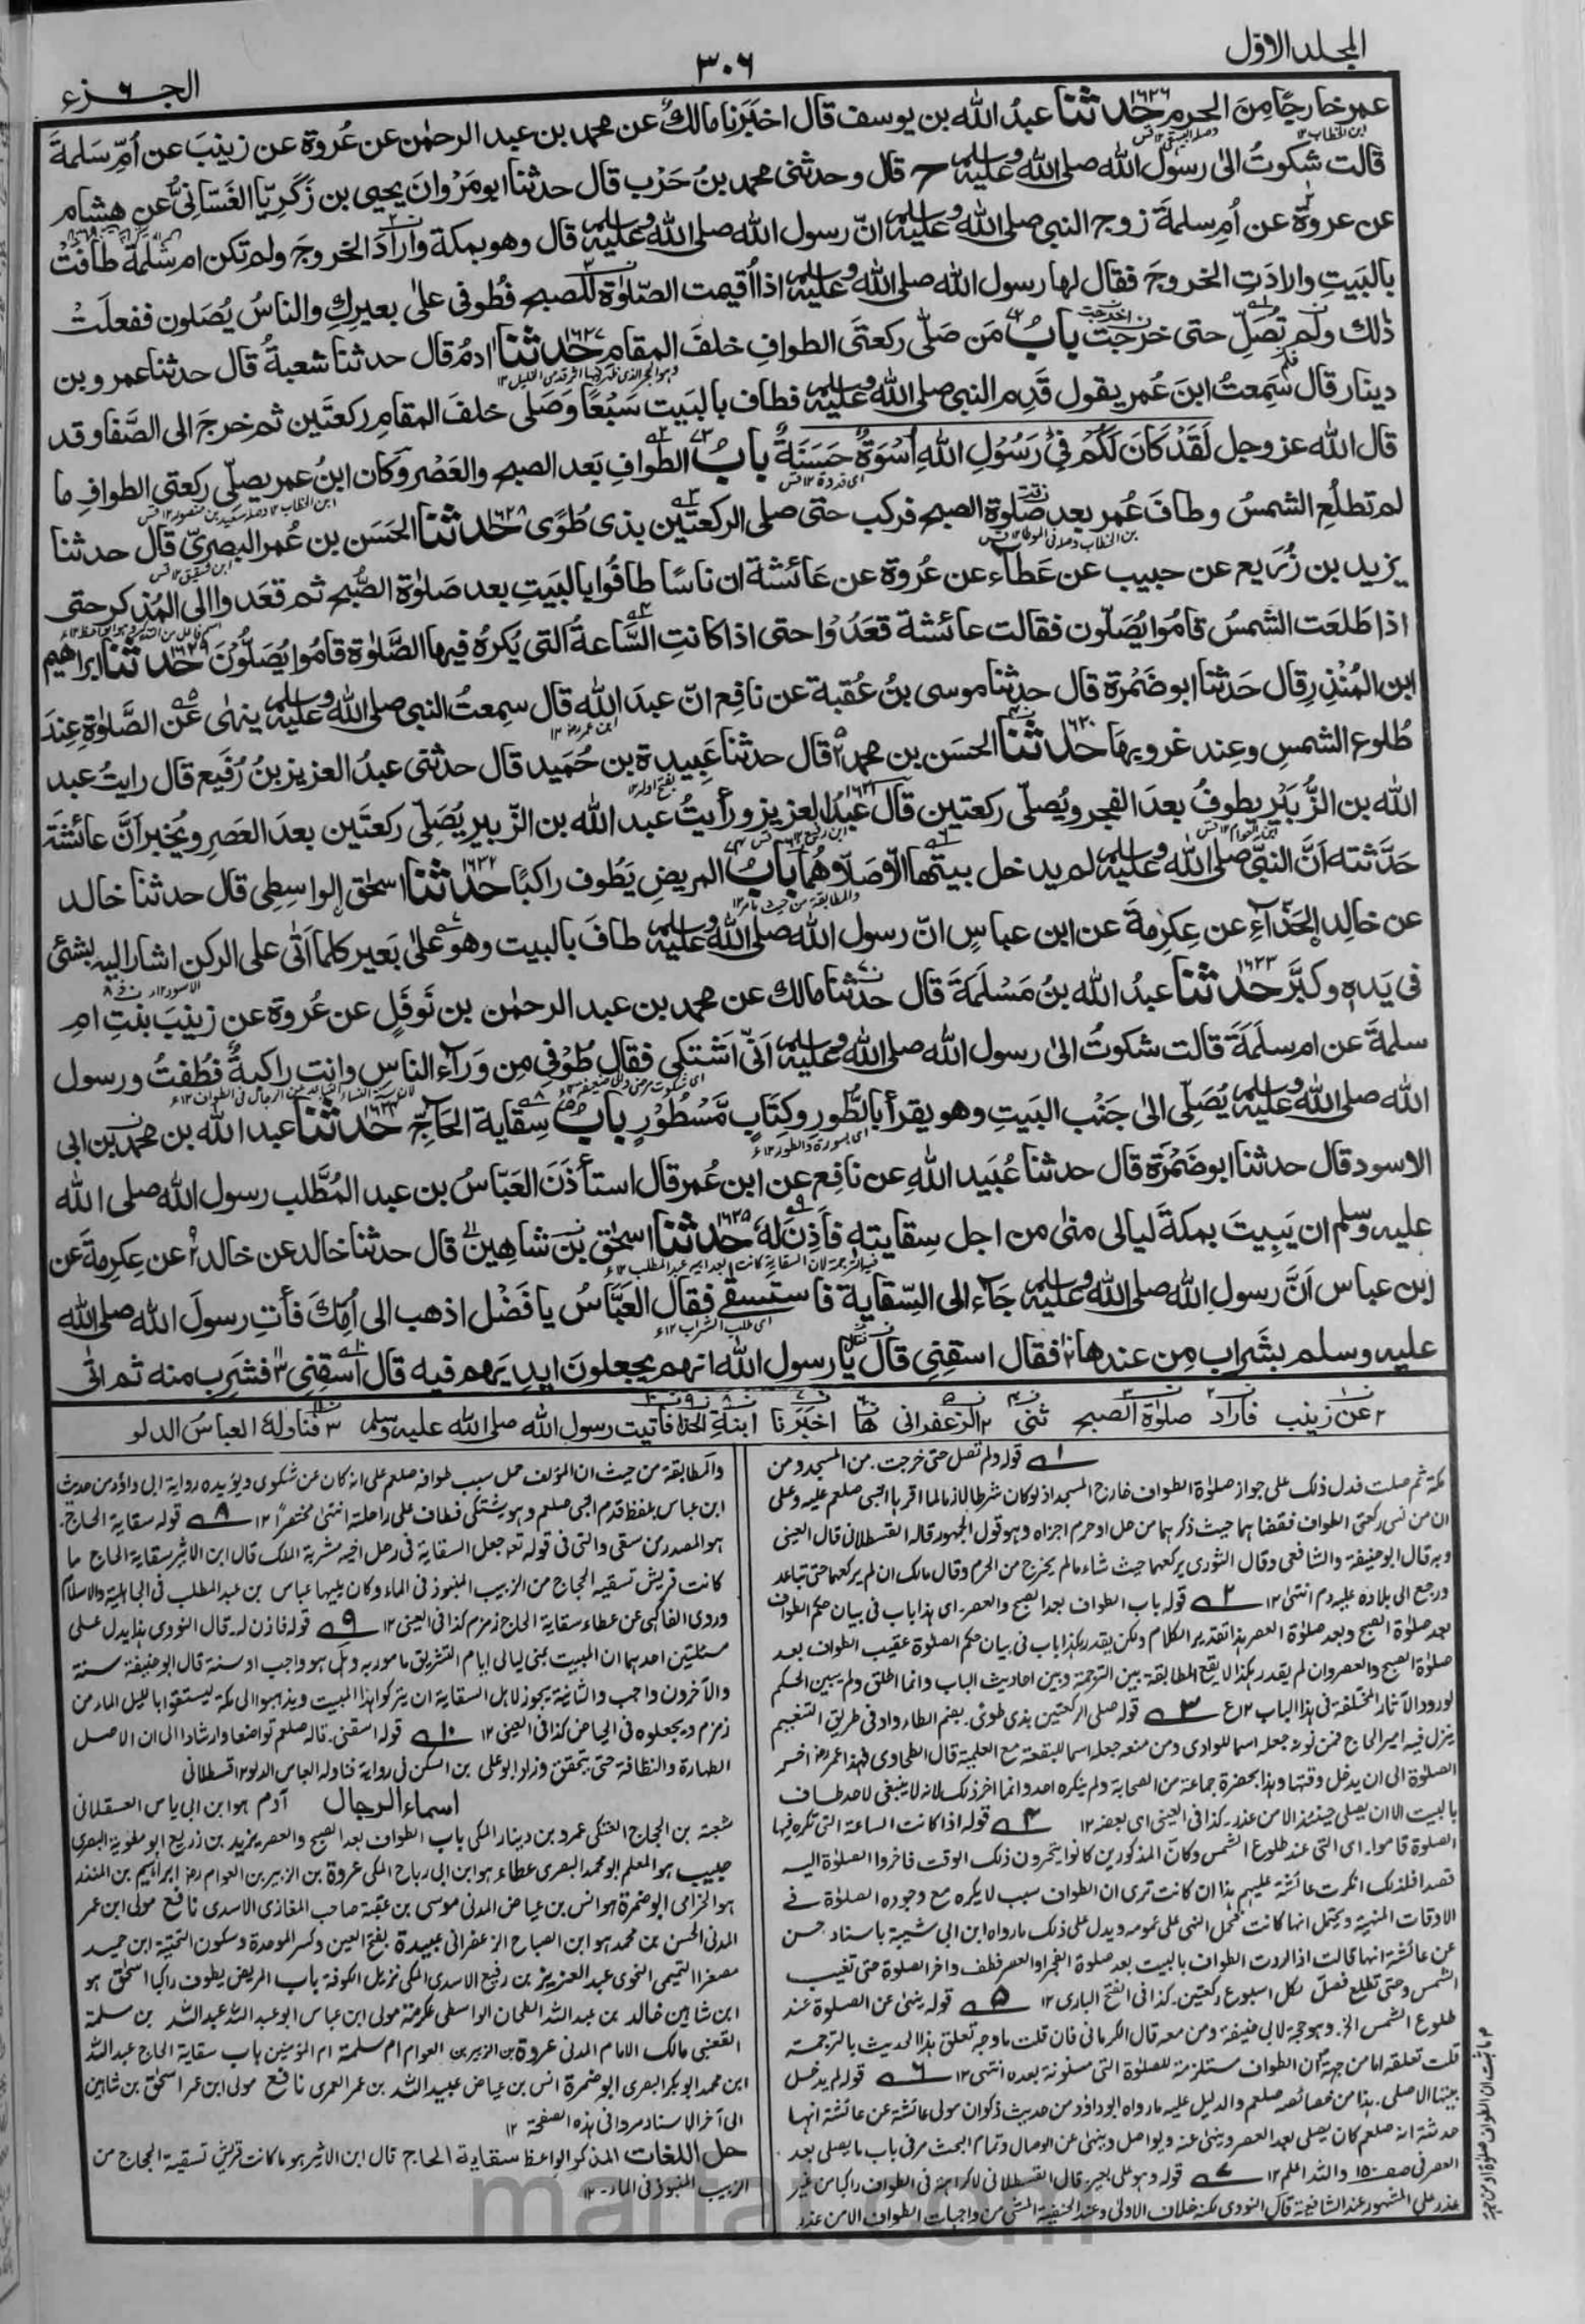 المجلد الاول
٣٠٦
الجزء ٦
عمر خارجًا مِنَ الحرم حدثنا ١٦٢٦ عبدُ الله بن يوسف قال اخبَرَنا مالكٌ عن محمد بن عبد الرحمٰن عن عُروة عن زينبَ عن اُمِّ سَلمةَ
قالت شكوتُ الىٰ رسول الله صلى الله عليه وسلم ح قال وحدثنى محمد بنُ حَرْب قال حدثنا ابو مَرْوانَ يحيى بن زَكَرِيّا الغَسّانىُّ عن هِشامٍ
عن عروة عن اُمِّ سلمةَ زوج النبى صلى الله عليه وسلم انّ رسول الله صلى الله عليه وسلم قال وهو بمكة وارادَ الخروجَ ولم تكن ام سَلَمةَ طافَتْ
بالبَيتِ وارادَتِ الخروجَ فقال لها رسول الله صلى الله عليه وسلم اذا اُقيمت الصّلوٰة للصبح فطُوفى علىٰ بعيرِكِ والناسُ يُصَلون ففعلَتْ
ذٰلك ولم تُصَلِّ حتى خرجَت بابُ مَن صَلّى ركعتَى الطوافِ خلفَ المقامِ حدثنا ١٦٢٧ اٰدمُ قال حدثنا شعبةُ قال حدثنا عمرو بن
دينار قال سَمِعتُ ابنَ عُمر يقول قَدِم النبى صلى الله عليه وسلم فطاف بالبَيت سَبْعًا وَصَلى خلفَ المقامِ ركعتَين ثم خرجَ الى الصَّفا وقد
قال الله عز وجل لَقَدْ كَانَ لَكُمْ فِىْ رَسُوْلِ اللهِ اُسْوَةٌ حَسَنَةٌ بابُ الطوافِ بَعد الصبح والعَصْر وكان ابنُ عمر يصلّى ركعتى الطوافِ ما
لم تطلُعِ الشمسُ وطافَ عُمر بعد صَلوٰة الصبح فركب حتى صلى الركعتين بذى طُوًى حدثنا ١٦٢٨ الحَسَن بن عُمر البصرىّ قال حدثنا
يزيد بن زُرَيع عن حبيب عن عَطاء عن عُروة عن عَائشة ان ناسًا طافُوا بالبَيتِ بعد صَلوٰة الصُّبح ثم قعَدوا الى المُذكر حتى
اذا طَلعَت الشمسُ قامُوا يُصَلّون فقالت عائشة قعَدُوا حتى اذا كانتِ السَّاعةُ التى يُكرَهُ فيها الصَّلوٰة قامُوا يُصَلُّوْنَ حدثنا ١٦٢٩ ابراهيم
ابن المُنْذِر قال حَدثنا ابو ضَمْرة قال حدثنا موسى بنُ عُقبة عن نافِع انّ عبدَ الله قال سمِعتُ النبى صلى الله عليه وسلم ينهٰى عن الصَّلوٰةِ عِندَ
طُلوع الشمسِ وعِند غروبِها حدثنا ١٦٣٠ الحسَن بن محمد٢ قال حدثنا عَبِيدة بن حُمَيد قال حدثنى عبدُ العزيز بنُ رُفَيع قال رايتُ عبد
الله بن الزُّبَيْرِ يطوفُ بعدَ الفجرِ ويُصلّى ركعتين ١٦٣١ قال عبدُ العزيز ورأيتُ عبد الله بن الزّبيرِ يُصَلّى ركعتَين بعدَ العَصرِ ويُخبِرانَّ عائشَةَ
حَدَّثته اَنَّ النبىَّ صلى الله عليه وسلم لم يدخل بيتها الّا صَلّاهُما بابُ المريضِ يَطُوف راكبًا حدثنا ١٦٣٢ اسحٰق الواسِطِى قال حدثنا خالد
عن خالدِ الحَذّاءِ عن عِكرِمةَ عن ابن عباسٍ انّ رسول الله صلى الله عليه وسلم طافَ بالبيت وهو علىٰ بَعير كلما اَتٰى على الركن اشار اليه بشئ
فى يَدِه وكبَّرَ حدثنا ١٦٣٣ عبدُ الله بنُ مَسْلَمَةَ قال حدثنا مالك عن محمد بن عبد الرحمٰن بن نَوفَلٍ عن عُروة عن زينبَ بنتِ امِ
سلمةَ عن ام سلَمَةَ قالت شكوتُ الىٰ رسول الله صلى الله عليه وسلم اَنّى اَشتكى فقال طُوْفى مِن وَرآءِ الناسِ وانتِ راكبةٌ فطُفتُ ورسول
الله صلى الله عليه وسلم يُصَلِى الىٰ جَنْب البَيتِ وهو يقرأ بالطُّورِ وكِتَابٍ مَّسْطُوْرٍ بابُ سِقاية الحَاجِّ حدثنا ١٦٣٤ عبد الله بن محمد بن ابى
الاسود قال حدثنا ابو ضَمْرَة قال حدثنا عُبَيد اللهِ عن نافِع عن ابن عُمر قال استأذَنَ العَبّاسُ بن عبد المُطَّلب رسول الله صلى الله
عليه وسلم ان يَبِيتَ بمكةَ ليالى منىٰ من اجل سِقايتِه فأَذِنَ لَهُ حدثنا ١٦٣٥ اسحٰق بن شاهِين قال حدثنا خالد عن خالد٢ عن عِكرِمةَ عن
ابن عباس اَنَّ رسول الله صلى الله عليه وسلم جَاءَ الى السِّقاية فاستَسقٰى فقال العَبَّاسُ يا فَضْل اذهب الى اُمِّكَ فأتِ رسولَ الله صلى الله
عليه وسلم بشَرابٍ مِن عندها فقال اسقِنى قال يا رسول الله انهم يجعلونَ ايدِيَهم فيه قال اسقِنِى ٣ فشَرِب منه ثم اتٰى
٢ عن زينب فاراد صلوٰة الصبح ثنى ٢ الزعفرانى ها اخبَرَنا ابنةِ فاتيت رسول الله صلى الله عليه وسلم ٣ فناوله العباسُ الدلو
١ قوله ولم تصل حتى خرجت. من المسجد ومن
مكة ثم صلت فدل ذلك على جواز صلوٰة الطواف خارج المسجد اذ لو كان شرطا لازما لما اقرها النبى صلعم عليه وعلى
ان من نسى ركعتى الطواف فقضاهما حيث ذكرهما من حل او حرم اجزاه وهو قول الجمهور قاله القسطلانى قال العينى
وبه قال ابو حنيفة والشافعى وقال الثورى يركعهما حيث شاء ما لم يخرج من الحرم وقال مالك ان لم يركعهما حتى تباعد
ورجع الى بلاده عليه دم انتهى ١٢ ٢ قوله باب الطواف بعد الصبح والعصر. اى هذا باب فى بيان حكم الطواف
بعد صلوٰة الصبح وبعد صلوٰة العصر هذا تقدير الكلام ولكن يقدر هكذا باب فى بيان حكم الصلوٰة عقيب الطواف بعد
صلوٰة الصبح والعصر وان لم يقدر هكذا لا يقع المطابقة بين الترجمة وبين احاديث الباب وانما اطلق ولم يبين الحكم
لورود الآثار المختلفة فى هذا الباب ١٢ ع ٣ قوله صلى الركعتين بذى طوىً. بضم الطاء واد فى طريق التنعيم
ينزل فيه امير الحاج فمن نونه جعله اسما للوادى ومن منعه جعله اسما للبقعة مع العلمية قال الطحاوى فهذا عمر رض اخر
الصلوٰة الى ان يدخل وقتها وهذا بحضرة جماعة من الصحابة ولم ينكره احد وانما اخر ذلك لانه لا ينبغى لاحد طاف
بالبيت الا ان يصلى حينئذ الا من عذر. كذا فى العينى اى بعضه ١٢ ٤ قوله اذا كانت الساعة التى تكره فيها
الصلوة قاموا. اى التى عند طلوع الشمس وكأن المذكورين كانوا يتحرون ذلك الوقت فاخروا الصلوٰة اليه
قصدا فلذلك انكرت عائشة عليهم هذا ان كانت ترى ان الطواف سبب لا يكره مع وجوده الصلوٰة فى
الاوقات المنهية ويحتمل انها كانت تحمل النهى على عمومه ويدل على ذلك ما رواه ابن ابى شيبة باسناد حسن
عن عائشة انها قالت اذا اردت الطواف بالبيت بعد صلوة الفجر او العصر فطف واخر الصلوة حتى تغيب
الشمس وحتى تطلع فصلّ لكل اسبوع ركعتين. كذا فى الفتح البارى ١٢ ٥ قوله ينهى عن الصلوة عند
طلوع الشمس الخ. وهو حجة لابى حنيفة ومن معه قال الكرمانى فان قلت ما وجه تعلق هذا الحديث بالترجمة
قلت تعلقه اما من جهة ان الطواف مستلزمة للصلوٰة التى مسنونة بعده انتهى ١٢ ٦ قوله لم يدخل
بيتها الا صلى. هذا من خصائصه صلعم والدليل عليه ما رواه ابو داؤد من حديث ذكوان مولى عائشة عن عائشة انها
حدثته انه صلعم كان يصلى بعد العصر وينهىٰ عنه ويواصل وينهىٰ عن الوصال وتمام البحث مر فى باب ما يصلى بعد
العصر فى صـ ١٥٠ والله اعلم ١٢ ٧ قوله وهو على بعير. قال القسطلانى لا كراهة فى الطواف راكبا من غير
عذر على المشهور عند الشافعية قال النووى لكنه خلاف الاولىٰ وعند الحنفية المشى من واجبات الطواف الا من عذر
والمطابقة من حيث ان المؤلف حمل سبب طوافه صلعم على انه كان عن شكوى ويؤيده رواية ابى داؤد من حديث
ابن عباس بلفظ قدم النبى صلعم وهو يشتكى فطاف على راحلته انتهىٰ مختصرًا ١٢ ٨ قوله سقاية الحاج.
هو المصدر من سقى والتى فى قوله تعہ جعل السقاية فى رحل اخيه مشربة الملك قال ابن الاثير سقاية الحاج ما
كانت قريش تسقيه الحجاج من الزبيب المنبوذ فى الماء وكان يليها عباس بن عبد المطلب فى الجاهلية والاسلام
وروى الفاكهى عن عطاء سقاية الحاج زمزم كذا فى العينى ١٢ ٩ قوله فاذن له. قال النووى هذا يدل على
مسئلتين احدهما ان المبيت بمنى ليالى ايام التشريق مامور به وهل هو واجب او سنة قال ابو حنيفة سنة
والآخرون واجب والثانية يجوز لاهل السقاية ان يتركوا هذا المبيت ويذهبوا الى مكة ليستقوا بالليل الماء من
زمزم ويجعلوه فى الحياض كذا فى العينى ١٢ ١٠ قوله اسقنى. قاله صلعم تواضعا وارشادا الى ان الاصل
الطهارة والنظافة حتى يتحقق وزاد ابو على بن السكن فى رواية فناوله العباس الدلو ١٢ قسطلانى
اسماء الرجال آدم هو ابن ابى ياس العسقلانى
شعبة بن الحجاج العتكى عمرو بن دينار المكى باب الطواف بعد الصبح والعصر يزيد بن زريع ابو معوية البصرى
حبيب هو المعلم ابو محمد البصرى عطاء هو ابن ابى رباح المكى عروة بن الزبير بن العوام رض ابراہيم بن المنذر
هو الحزامى ابو ضمرة هو انس بن عياض المدنى موسى بن عقبة صاحب المغازى الاسدى نافع مولى ابن عمر
المدنى الحسن بن محمد هو ابن الصباح الزعفرانى عبيدة بفتح العين وكسر الموحدة وسكون التحتية ابن حميد
مصغرا التيمى النحوى عبد العزيز بن رفيع الاسدى المكى نزيل الكوفة باب المريض يطوف راكبا اسحٰق هو
ابن شاهين خالد بن عبد الله الطحان الواسطى عكرمة مولى ابن عباس ابو عبد الله عبد الله بن مسلمة
القعنبى مالك الامام المدنى عروة بن الزبير بن العوام ام سلمة ام المؤمنين باب سقاية الحاج عبد الله
ابن محمد ابو بكر البصرى ابو ضمرة انس بن عياض عبيد الله بن عمر العمرى نافع مولى ابن عمر اسحٰق بن شاهين
الى آخر الاسناد مر وا فى هذه الصفحة ١٢
حل اللغات المذكر الواعظ سقاية الحاج قال ابن الاثير هو ما كانت قريش تسقية الحجاج من
الزبيب المنبوذ فى الماء ١٢